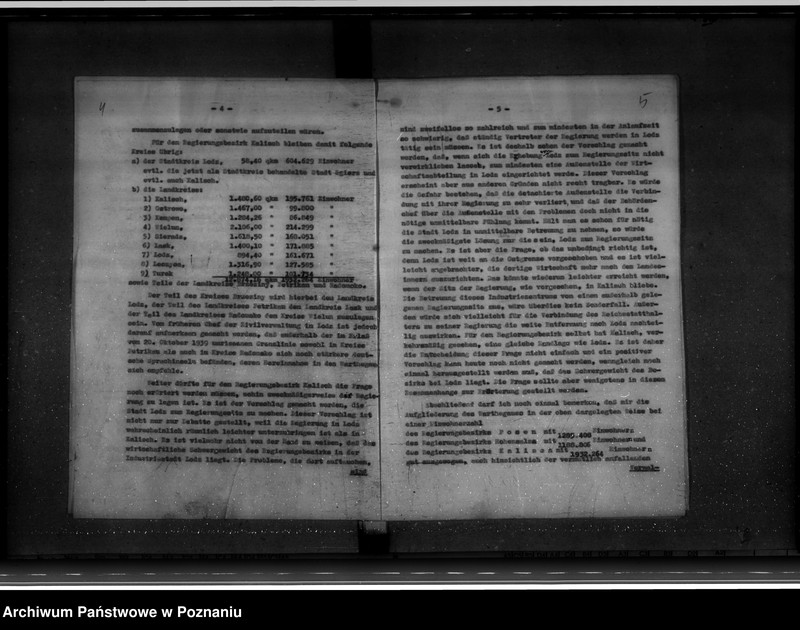 4
- 4 -
zusammenzulegen oder sonstwie aufzuteilen wären.
Für den Regierungsbezirk Kalisch bleiben damit folgende
Kreise übrig:
a) der Stadtkreis Lodz, 58,40 qkm 604.629 Einwohner
evtl. die jetzt als Stadtkreis behandelte Stadt Zgierz und
evtl. auch Kalisch.
b) die Landkreise:
1) Kalisch, 1.400,60 qkm 195.761 Einwohner
2) Ostrowo, 1.467,00 " 99.000 "
3) Kempen, 1.284,26 " 86.049 "
4) Wielun, 2.106,00 " 214.299 "
5) Sieradz, 1.618,50 " 160.051 "
6) Lask, 1.400,10 " 171.085 "
7) Lodz, 894,40 " 161.671 "
8) Lenczyca, 1.316,90 " 127.585 "
9) Turek
sowie Teile der Landkreise Brzeziny, Petrikau und Radomsko.
Der Teil des Kreises Brzeziny wird hierbei dem Landkreis
Lodz, der Teil des Landkreises Petrikau dem Landkreis Lask und
der Teil des Landkreises Radomsko dem Kreise Wielun zuzulegen
sein. Vom früheren Chef der Zivilverwaltung in Lodz ist jedoch
darauf aufmerksam gemacht worden, daß außerhalb der im Erlaß
vom 20. Oktober 1939 zugelassenen Grenzlinie sowohl im Kreise
Petrikau als auch im Kreise Radomsko sich noch stärkere deut-
sche Sprachinseln befänden, deren Hereinnahme in den Warthegau
sich empfehle.
Weiter dürfte für den Regierungsbezirk Kalisch die Frage
noch erörtert werden müssen, wohin zweckmäßigerweise der Regie-
rung zu legen ist. Es ist der Vorschlag gemacht worden, die
Stadt Lodz zum Regierungssitz zu machen. Dieser Vorschlag ist
nicht nur zur Debatte gestellt, weil die Regierung in Lodz
wahrscheinlich räumlich leichter unterzubringen ist als in
Kalisch. Es ist vielmehr nicht von der Hand zu weisen, daß das
wirtschaftliche Schwergewicht des Regierungsbezirks in der
Industriestadt Lodz liegt. Die Probleme, die dort auftauchen,
sind
5
- 5 -
sind zweifellos so zahlreich und zum mindesten in der Anlaufzeit
so schwierig, daß ständig Vertreter der Regierung werden in Lodz
tätig sein müssen. Es ist deshalb schon der Vorschlag gemacht
worden, daß, wenn sich die Erhebung Lodz zum Regierungssitz nicht
verwirklichen lassen, zum mindesten eine Außenstelle der Wirt-
schaftsabteilung in Lodz eingerichtet werde. Dieser Vorschlag
erscheint aber aus anderen Gründen nicht recht tragbar. Es würde
die Gefahr bestehen, daß die detachierte Außenstelle die Verbin-
dung mit ihrer Regierung zu sehr verliert, und daß der Behörden-
chef über die Außenstelle mit den Problemen doch nicht in die
nötige unmittelbare Fühlung kommt. Hält man es schon für nötig
die Stadt Lodz in unmittelbare Betreuung zu nehmen, so würde
die zweckmäßigste Lösung nur die sein, Lodz zum Regierungssitz
zu machen. Es ist aber die Frage, ob das unbedingt richtig ist,
denn Lodz ist weit an die Ostgrenze vorgeschoben und es ist viel-
leicht angebrachter, die dortige Wirtschaft mehr nach dem Landes-
innern auszurichten. Das könnte wiederum leichter erreicht werden,
wenn der Sitz der Regierung, wie vorgesehen, in Kalisch bliebe.
Die Betreuung dieses Industriezentrums von einem außerhalb gele-
genen Regierungssitz aus, wäre überdies kein Sonderfall. Außer-
dem würde sich vielleicht für die Verbindung des Reichsstatthal-
ters zu seiner Regierung die weite Entfernung nach Lodz nachtei-
lig auswirken. Für den Regierungsbezirk selbst hat Kalisch, ver-
kehrsmäßig gesehen, eine gleiche Randlage wie Lodz. Es ist daher
die Entscheidung dieser Frage nicht einfach und ein positiver
Vorschlag kann heute noch nicht gemacht werden, wenngleich noch
einmal herausgestellt werden muß, daß das Schwergewicht des Be-
zirks bei Lodz liegt. Die Frage sollte aber wenigstens in diesem
Zusammenhange zur Erörterung gestellt werden.
Abschließend darf ich noch einmal bemerken, daß mir die
Aufgliederung des Warthegaues in der eben dargelegten Weise bei
einer Einwohnerzahl
des Regierungsbezirks P o s e n mit 1289.408 Einwohnern
des Regierungsbezirks Hohensalza mit Einwohnern und
des Regierungsbezirks K a l i s c h mit 1932.264 Einwohnern
gut ausgewogen, auch hinsichtlich der vermutlich anfallenden
Verwal-
Archiwum Państwowe w Poznaniu